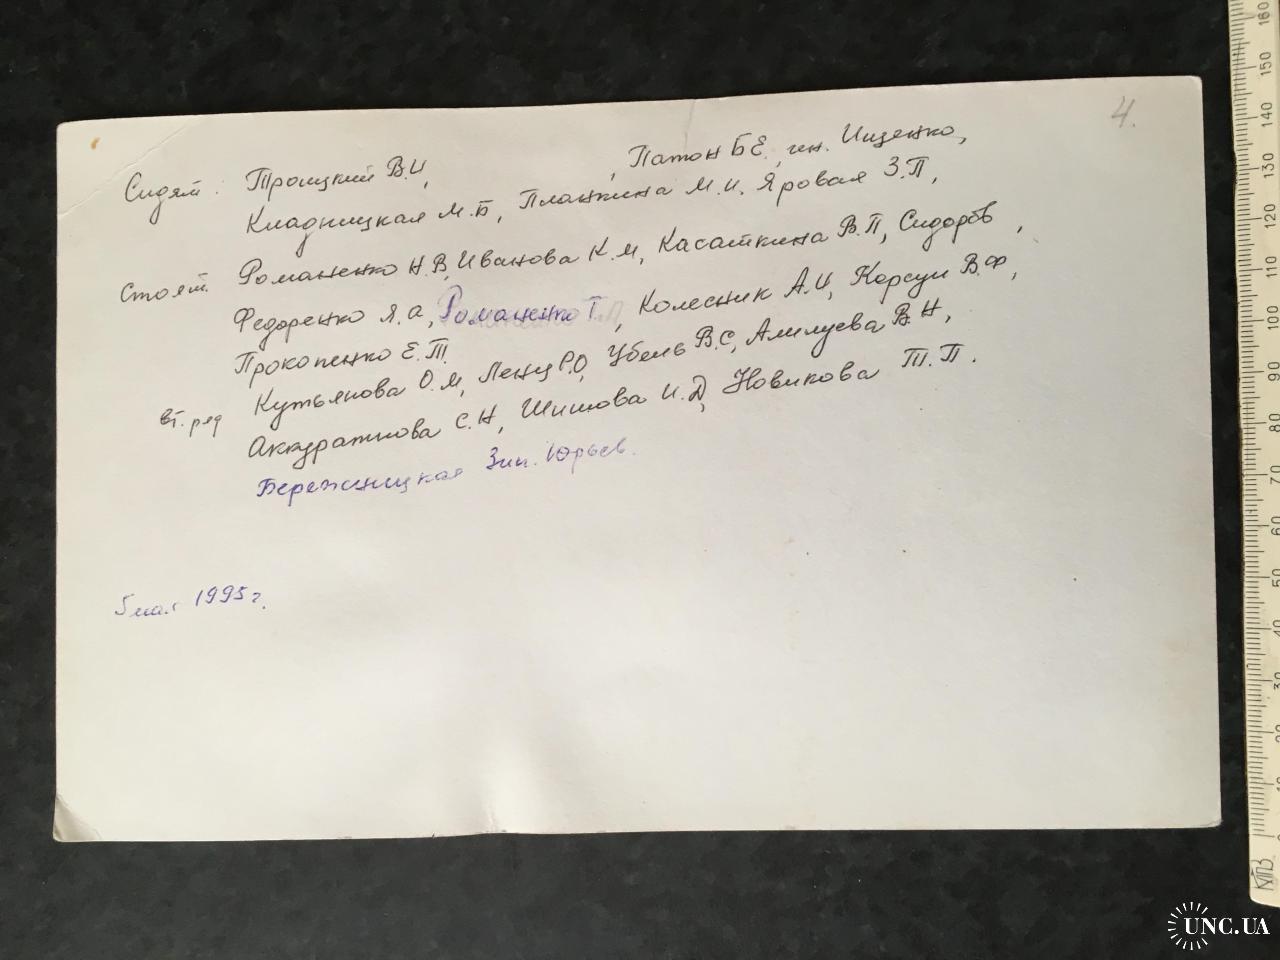 4.
Сидят: Троицкий В.И, Патон Б.Е., ген. Ищенко,
Кладницкая М.Б, Планкина М.И. Яровая З.П,
Стоят. Романенко Н.В, Иванова К.М, Касаткина В.П, Сидоров,
Федоренко Я.А, Романенко Т, Колесник А.И, Корсун В.Ф,
Прокопенко Е.Т.
Вт. ряд Кутьянова О.М, Ленц Р.О, Убель В.С, Алилуева В.Н,
Аккуратнова С.Н, Шишова И.Д, Новикова Т.П.
Бережницкая Зин. Юрьев.
5 мая 1995 г.
160
150
140
130
120
110
100
90
80
70
60
50
40
30
20
10
0
UNC.UA